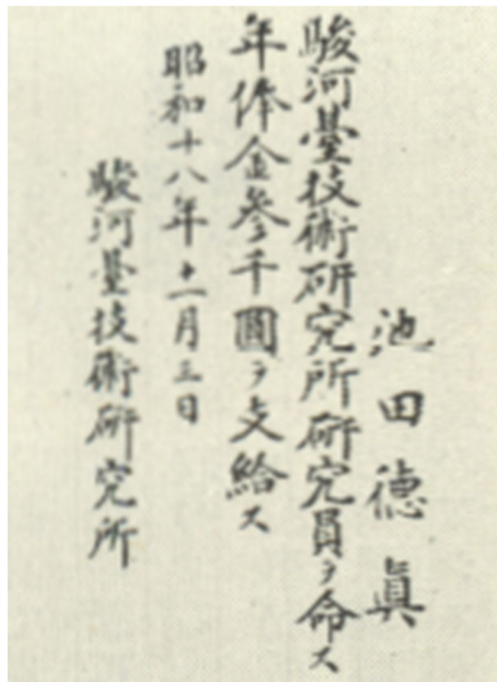 池田德眞
駿河臺技術研究所研究員ヲ命ス
年俸金參千圓ヲ支給ス
昭和十八年十一月三日
駿河臺技術研究所